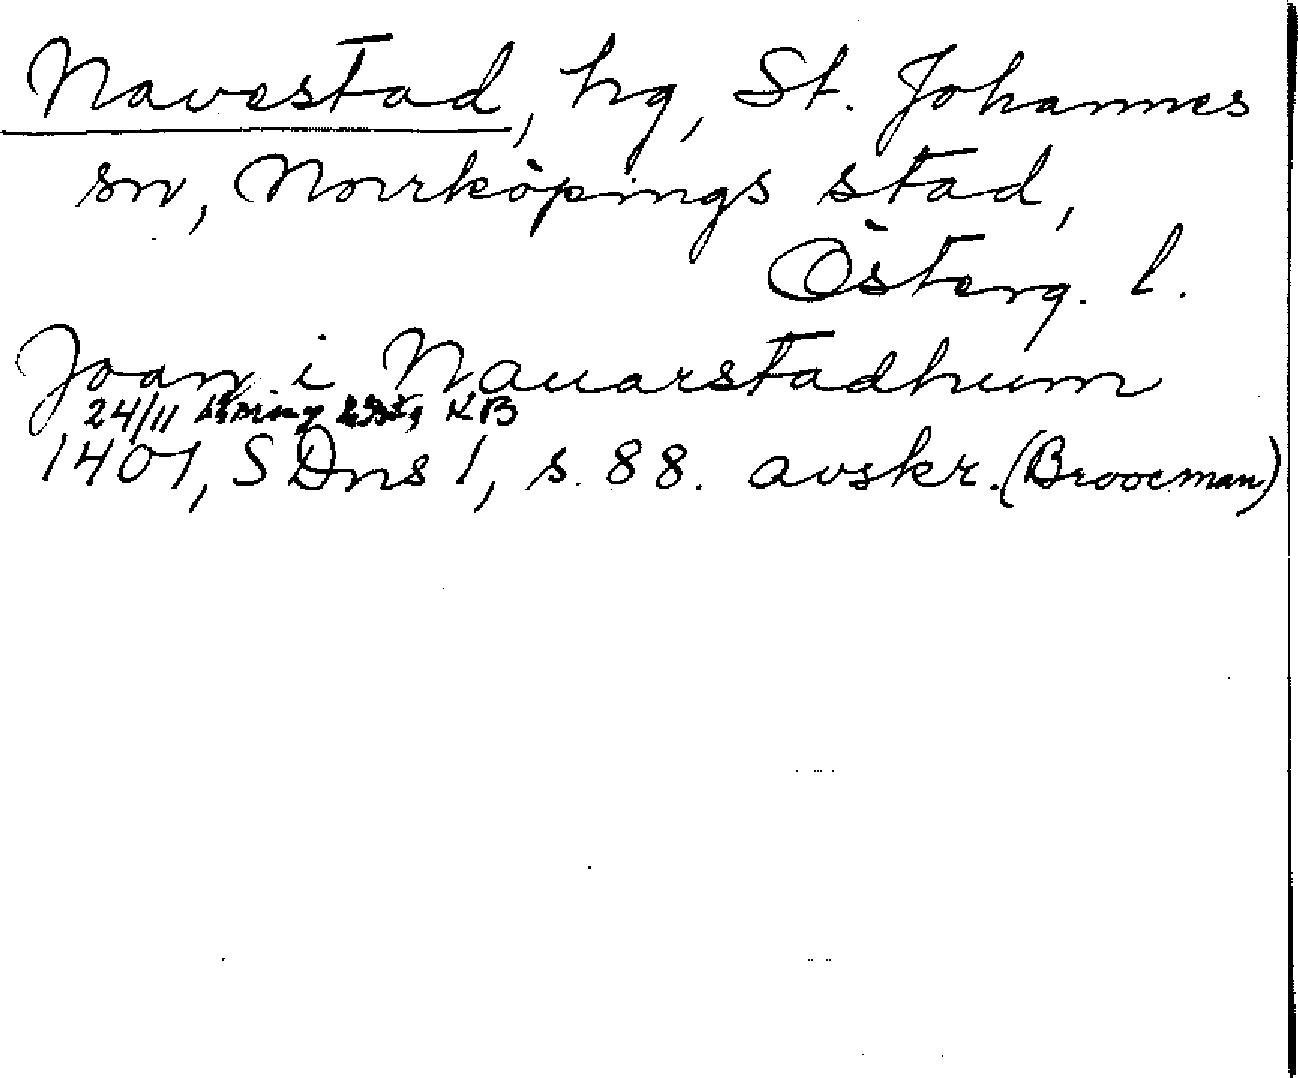 Navestad, hg, St. Johannes
sn, Norrköpings stad,
Österg. l.
Joan i Nauarstadhum
24/11 KB
1401, SDns 1, s. 88. avskr. (Broocman)